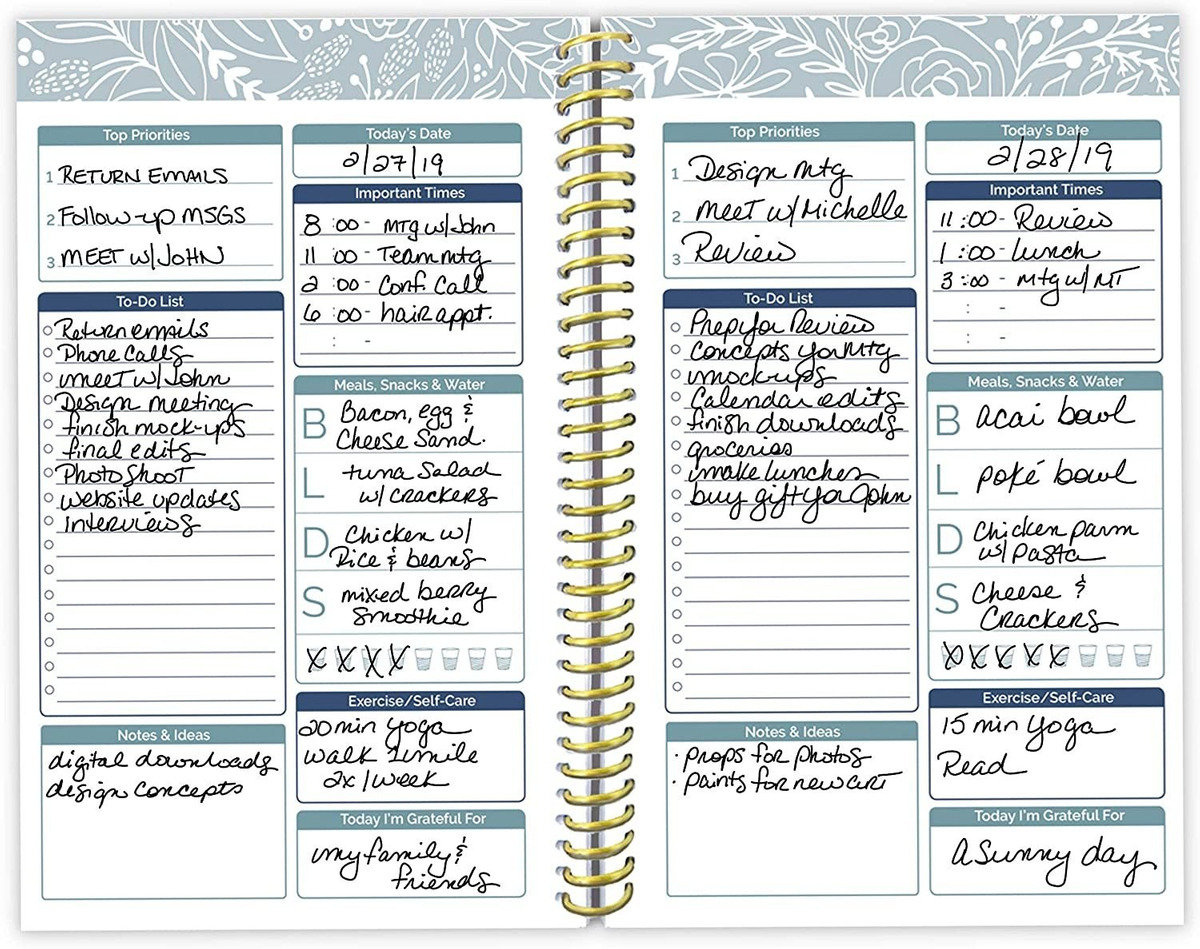 Top Priorities
1 RETURN EMAILS
2 Follow-up MSGS
3 MEET w/JOHN
To-Do List
Return emails
Phone Calls
meet w/John
Design meeting
finish mock-ups
final edits
Photo Shoot
website updates
Interviews
Notes & Ideas
digital downloads
design concepts
Today's Date
2/27/19
Important Times
8 :00 - Mtg w/John
11 :00 - Team mtg
2 :00 - Conf. Call
6 :00 - hair appt.
: -
Meals, Snacks & Water
B Bacon, egg &
Cheese Sand.
L tuna Salad
w/ crackers
D Chicken w/
Rice & beans
S mixed berry
Smoothie
Exercise/Self-Care
20 min yoga
walk 1 mile
2x/week
Today I'm Grateful For
my family &
friends
Top Priorities
1 Design mtg
2 meet w/Michelle
3 Review
To-Do List
Prep for Review
Concepts for Mtg
mock-ups
Calendar edits
finish downloads
groceries
make lunches
buy gift for John
Notes & Ideas
· props for photos
· paints for new art
Today's Date
2/28/19
Important Times
11 :00 - Review
1 :00 - lunch
3 :00 - mtg w/ MT
: -
: -
Meals, Snacks & Water
B acai bowl
L poké bowl
D Chicken parm
w/ Pasta
S Cheese &
Crackers
Exercise/Self-Care
15 min yoga
Read
Today I'm Grateful For
A Sunny day